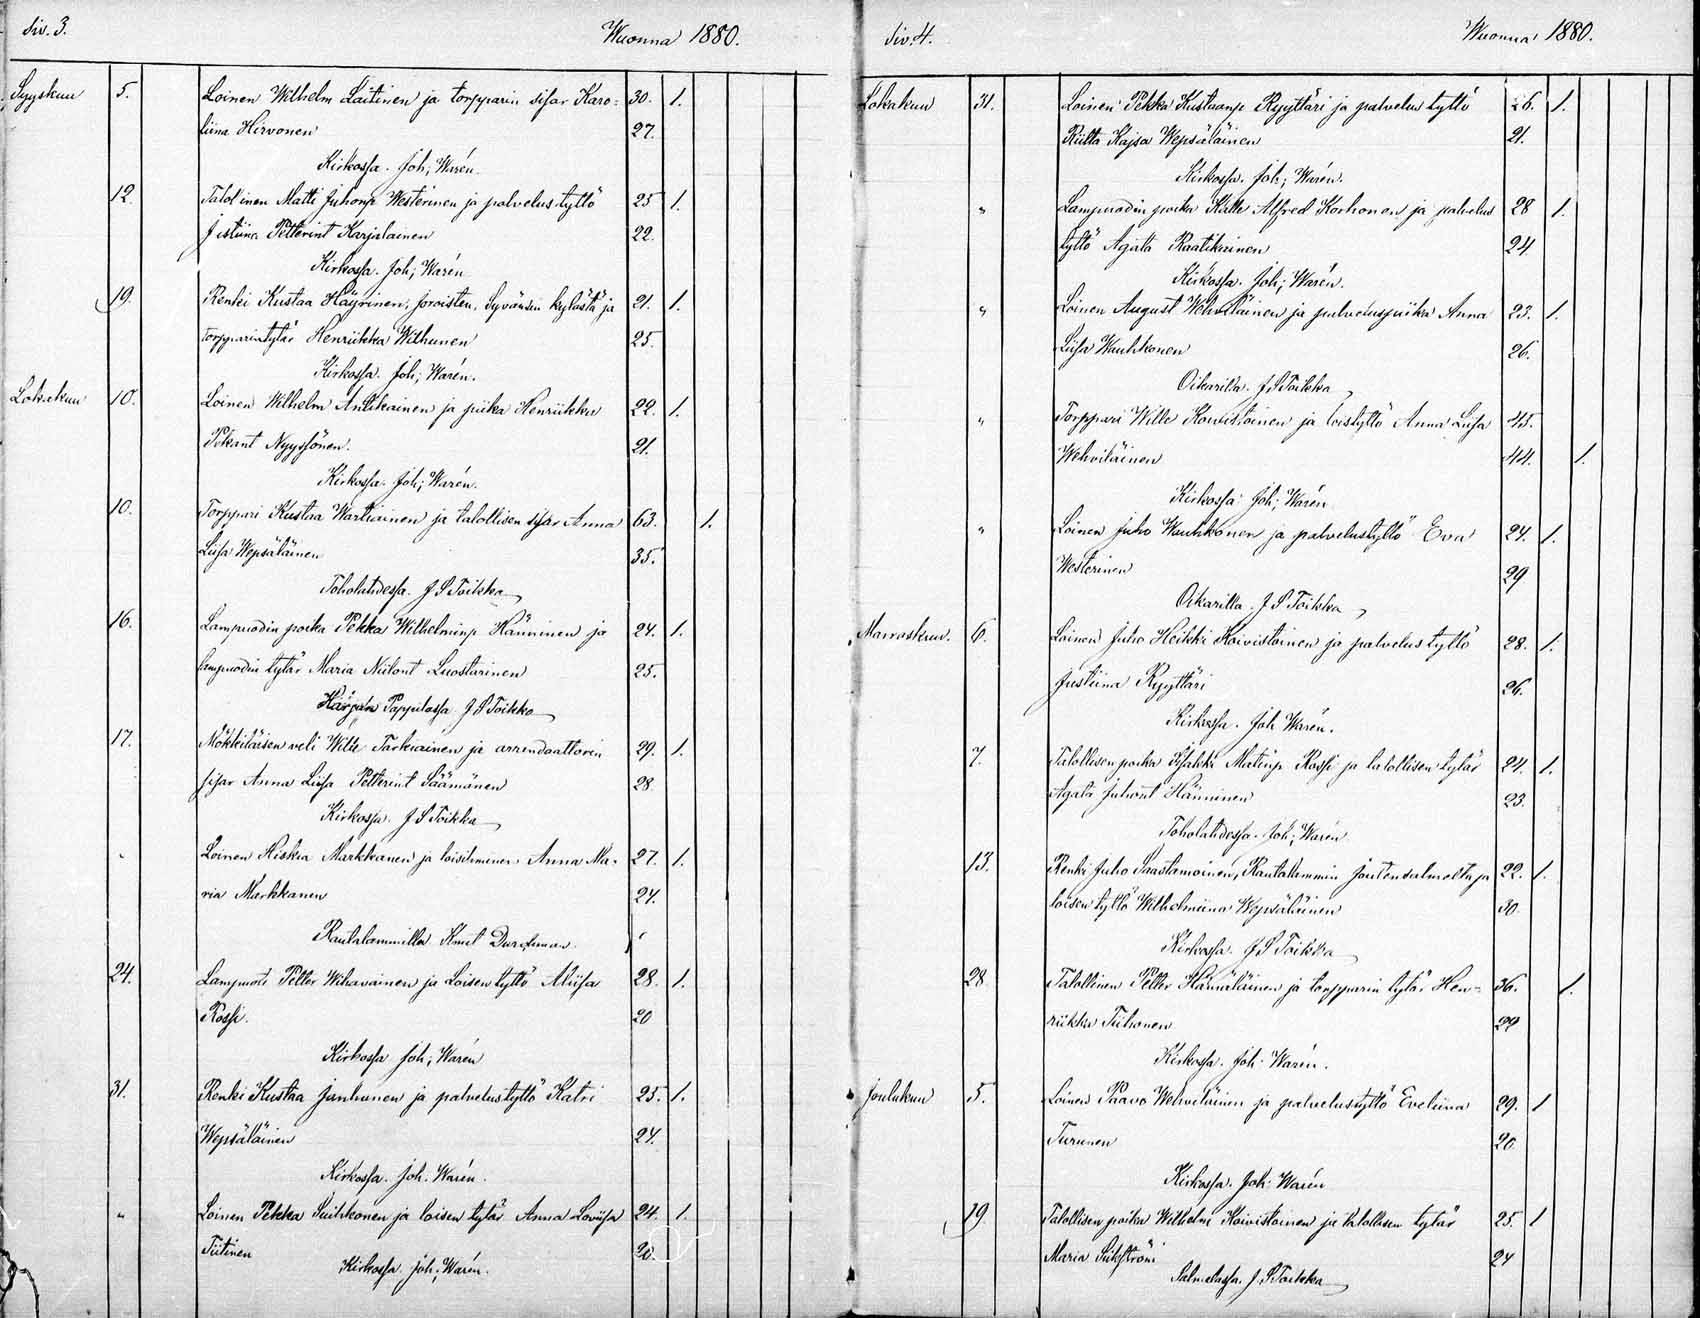 siv. 3.
Wuonna 1880.
Syyskuu 5. Loinen Wilhelm Laitinen ja torpparin sisar Karo- 30. 1.
liina Hirvonen 27.
Kirkossa. Joh; Warén.
12. Talollinen Matti Juhonp Westerinen ja palvelustyttö 25 1.
Justiina Petterint Karjalainen 22.
Kirkossa. Joh; Warén
19. Renki Kustaa Häyrinen, Joroisten, Syvänsin kylästä ja 21. 1.
torpparintytär Henriikka Wilhunen 25.
Kirkossa. Joh; Warén.
Lokakuu 10. Loinen Wilhelm Antikainen ja piika Henriikka 22. 1.
Pekant Nyyssönen. 21.
Kirkossa. Joh; Warén.
10. Torppari Kustaa Wartiainen ja talollisen sisar Anna 63. 1.
Liisa Wepsäläinen 35.
Toholahdessa. J S Toikka
16. Lampuodin poika Pekka Wilhelminp Hänninen ja 24. 1.
lampuodin tytär Maria Niilont Luostarinen 25.
Pappilassa J S Toikka
17. Mökkiläisen veli Wille Tarkiainen ja arrendaattorin 29. 1.
sisar Anna Liisa Petterint Säämänen 28.
Kirkossa. J S Toikka
" Loinen Hiskia Markkanen ja loisihminen Anna Ma- 27. 1.
ria Markkanen 24.
Rautalammilla Knut
24. Lampuoti Petter Wihavainen ja Loisen tyttö Miisa 28. 1.
Rossi. 20
Kirkossa Joh; Warén
31. Renki Kustaa Janhunen ja palvelustyttö Katri 25. 1.
Wepsäläinen 24.
Kirkossa. Joh. Warén.
" Loinen Pekka Suihkonen ja loisen tytär Anna Loviisa 24. 1.
Tiitinen 20.
Kirkossa. Joh; Warén.
siv. 4.
Wuonna 1880.
Lokakuu 31. Loinen Pekka Kustaanp Ryyttäri ja palvelus tyttö 26. 1.
Riitta Kajsa Wepsäläinen 21.
Kirkossa. Joh; Warén.
" Lampuodin poika Kalle Alfred Korhonen ja palvelus 28 1.
tyttö Agata Raatikainen 24
Kirkossa. Joh; Warén.
" Loinen August Wehviläinen ja palveluspiika Anna 23. 1.
Liisa Wauhkonen 26.
Oikarilla. J S Toikka
" Torppari Wille Koivistoinen ja loistyttö Anna Liisa 45.
Wehviläinen 44. 1.
Kirkossa Joh; Warén
" Loinen Juho Wauhkonen ja palvelustyttö Eva 24. 1.
Westerinen 29
Oikarilla. J S Toikka
Marraskuu. 6. Loinen Juho Heikki Koivistoinen ja palvelus tyttö 28. 1.
Justiina Ryyttäri 26.
Kirkossa. Joh Warén.
7. Talollisen poika Iisakki Matinp Rossi ja talollisen tytär 24. 1.
Agata Juhont Hänninen 23.
Toholahdessa. Joh; Warén
13. Renki Juho Saastamoinen, Rautalammin Jäntensalmelta ja 22. 1.
loisen tyttö Wilhelmiina Wepsäläinen 30.
Kirkossa. J S Toikka
28 Talollinen Petter Hämäläinen ja torpparin tytär Hen- 36. 1.
riikka Tiihonen 29
Kirkossa. Joh. Warén.
Joulukuu 5. Loinen Paavo Wehviläinen ja palvelustyttö Eveliina 29. 1
Turunen 20
Kirkossa. Joh: Warén
19 Talollisen poika Wilhelm Koivistoinen ja talollisen tytär 25. 1
Maria 24
Salmelassa. J. S Toikka